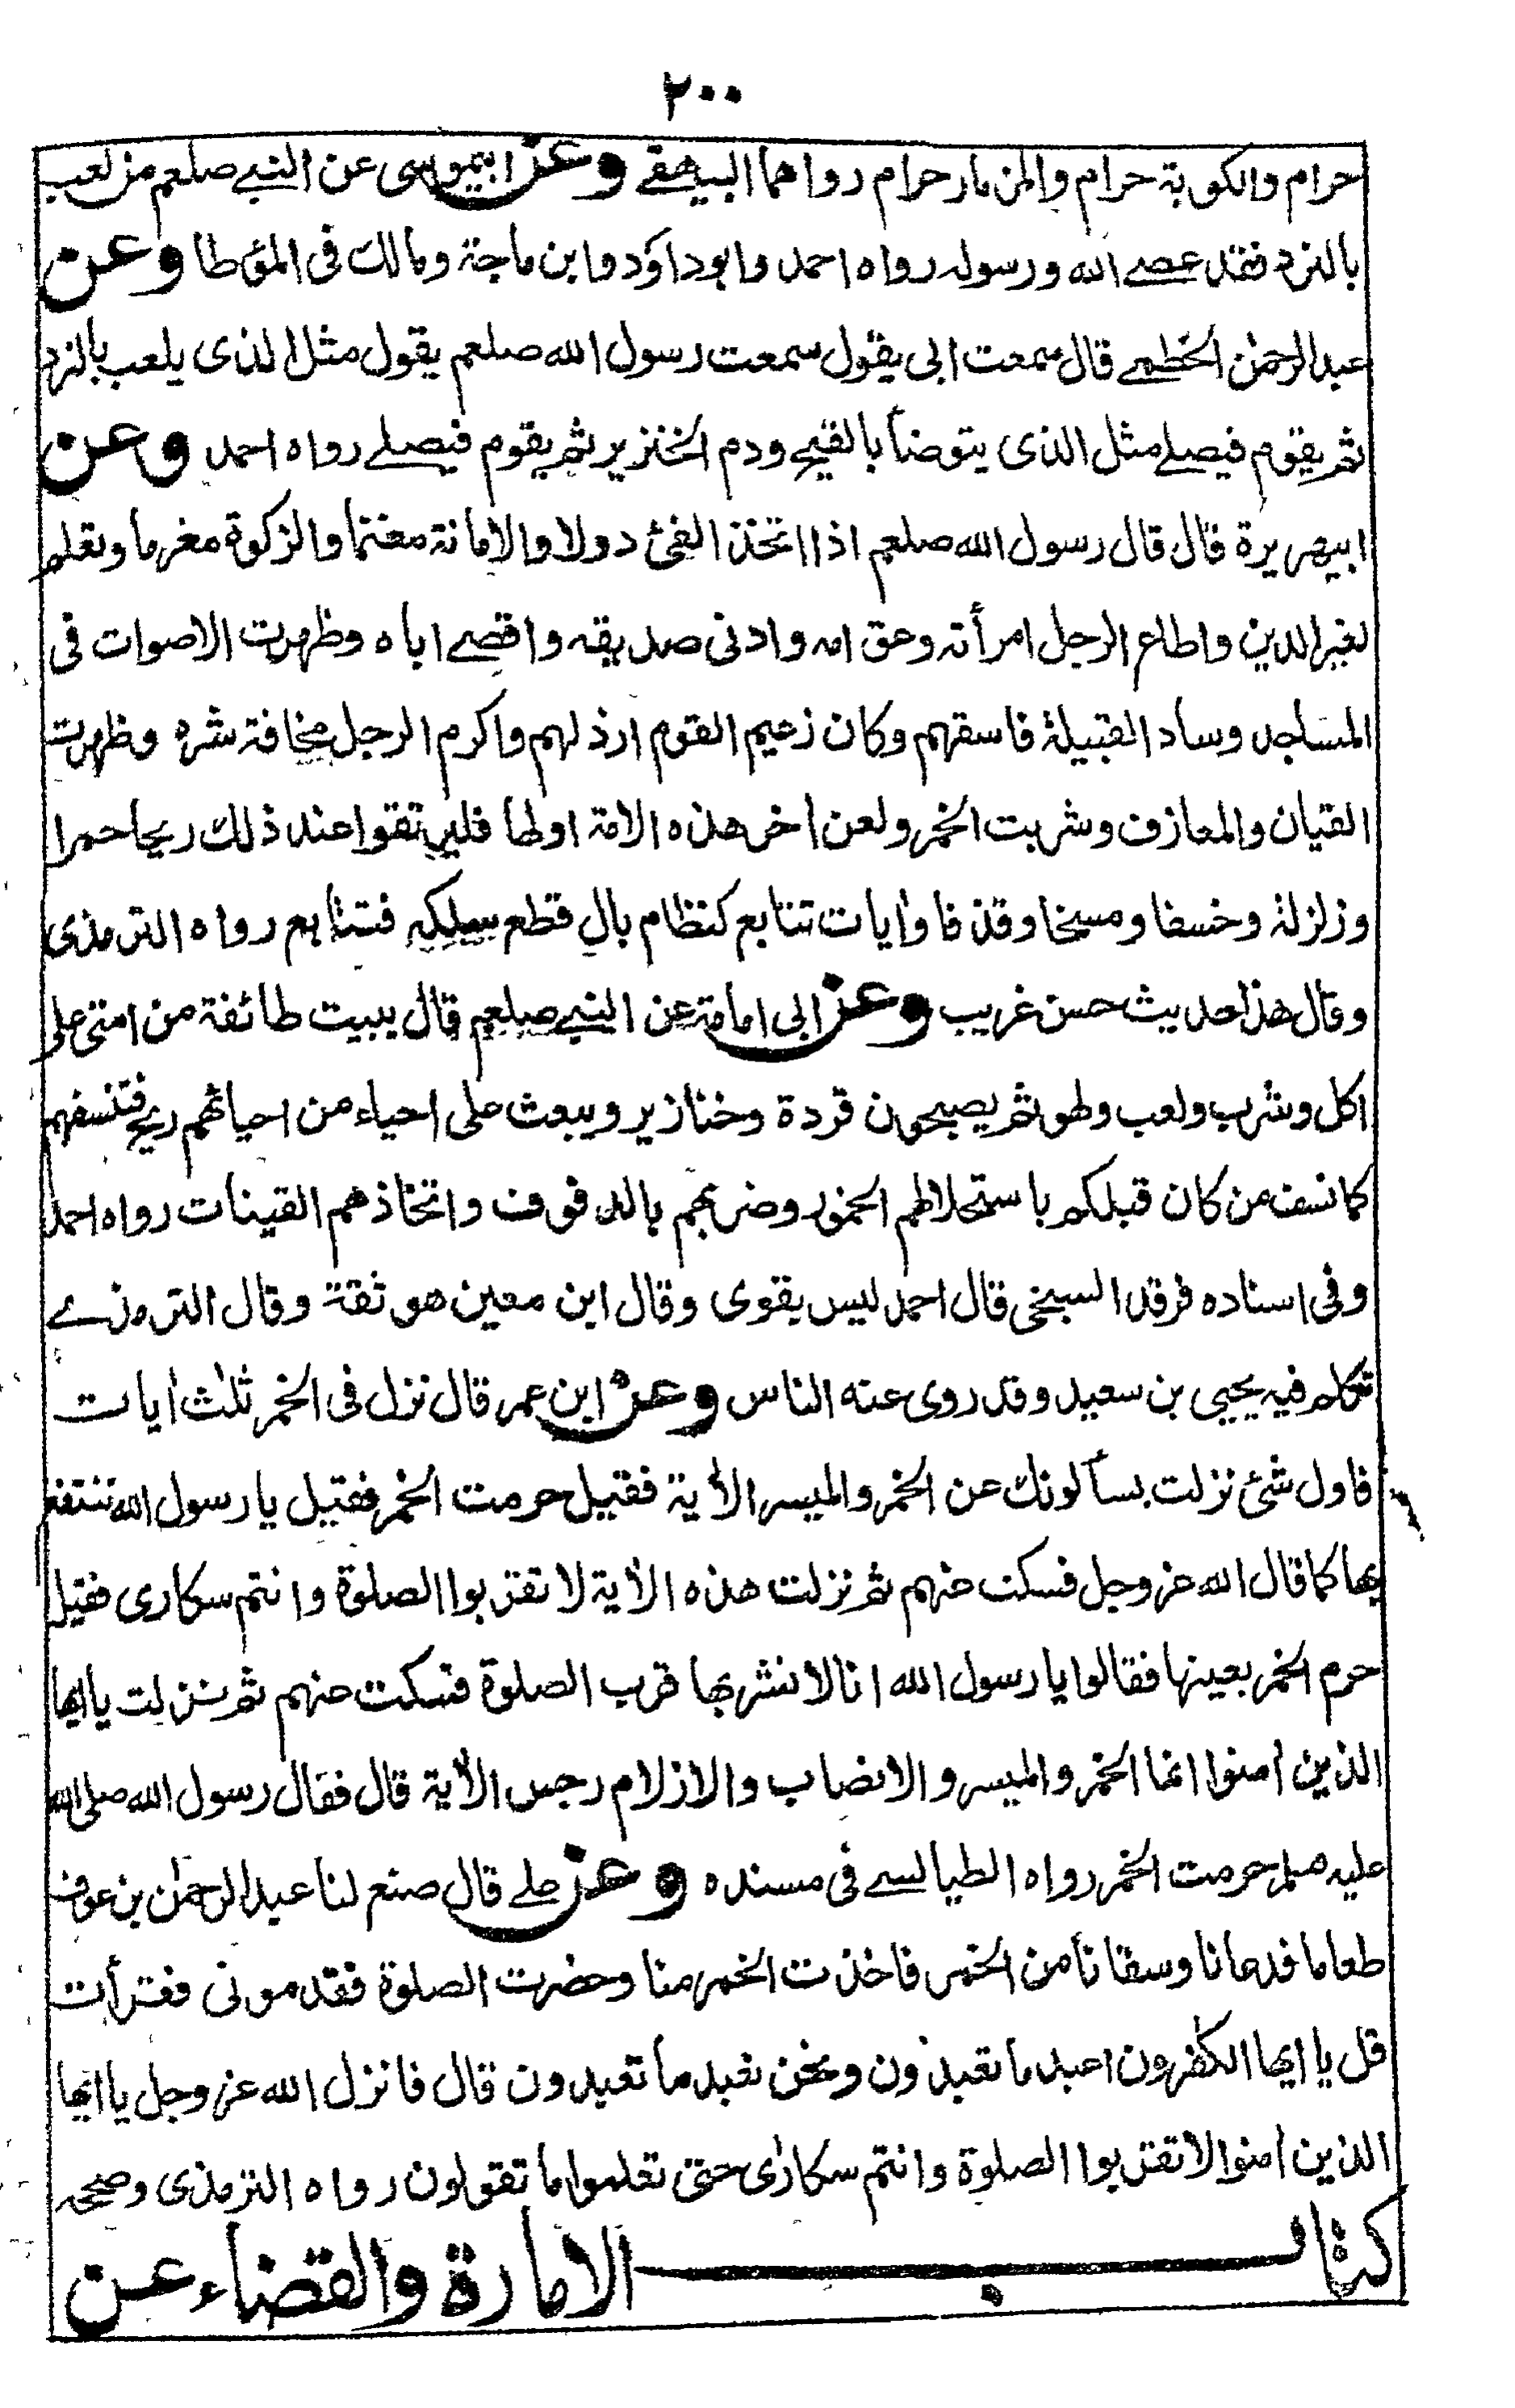 ٢٠٠
حرام والكوبة حرام والمزمار حرام رواهما البيهقے وعن ابيموسى عن النبے صلعم من لعب
بالنرد فقد عصے الله ورسوله رواه احمد وابوداؤد وابن ماجة ومالك فى المؤطا وعن
عبدالرحمٰن الخطمے قال سمعت ابى يقول سمعت رسول الله صلعم يقول مثل الذى يلعب بالنرد
ثم يقوم فيصلے مثل الذى يتوضأ بالقيح ودم الخنزير ثم يقوم فيصلے رواه احمد وعن
ابيهريرة قال قال رسول الله صلعم اذا اتخذ الفئ دولا والامانة مغنما والزكوة مغرما وتعلم
لغير الدين واطاع الرجل امرأته وعق امه وادنى صديقه واقصے اباه وظهرت الاصوات فى
المساجد وساد القبيلة فاسقهم وكان زعيم القوم ارذلهم واكرم الرجل مخافة شره وظهرت
القيان والمعازف وشربت الخمر ولعن اٰخر هذه الامة اولها فليرتقوا عند ذلك ريحا حمرا
وزلزلة وخسفا ومسخا وقذفا واٰيات تتابع كنظام بال قطع سلكه فتتابع رواه الترمذى
وقال هذا حديث حسن غريب وعن ابى امامة عن النبے صلعم قال يبيت طائفة من امتى على
اكل وشرب ولعب ولهو ثم يصبحون قردة وخنازير ويبعث على احياء من احيائهم ريح فتنسفهم
كما نسف من كان قبلكم باستحلالهم الخمور وضربهم بالدفوف واتخاذهم القينات رواه احمد
وفى اسناده فرقد السبخى قال احمد ليس بقوى وقال ابن معين هو ثقة وقال الترمذے
تكلم فيه يحيى بن سعيد وقد روى عنه الناس وعن ابن عمر قال نزل فى الخمر ثلٰث اٰيات
فاول شئ نزلت يسألونك عن الخمر والميسر الاٰية فقيل حرمت الخمر فقيل يا رسول الله ننتفع
بها كما قال الله عز وجل فسكت عنهم ثم نزلت هذه الاٰية لا تقربوا الصلوة وانتم سكارى فقيل
حرم الخمر بعينها فقالوا يا رسول الله انا لا نشربها قرب الصلوة فسكت عنهم ثم نزلت يا ايها
الذين اٰمنوا انما الخمر والميسر والانصاب والازلام رجس الاٰية قال فقال رسول الله صلى الله
عليه سلم حرمت الخمر رواه الطيالسے فى مسنده وعن علے قال صنع لنا عبد الرحمٰن بن عوف
طعاما فدعانا وسقانا من الخمر فاخذت الخمر منا وحضرت الصلوة فقدمونى فقرأت
قل يا ايها الكٰفرون اعبد ما تعبدون ونحن نعبد ما تعبدون قال فانزل الله عز وجل يا ايها
الذين اٰمنوا لا تقربوا الصلوة وانتم سكارٰى حتى تعلموا ما تقولون رواه الترمذى وصححه
كتاب الامارة والقضاء عن